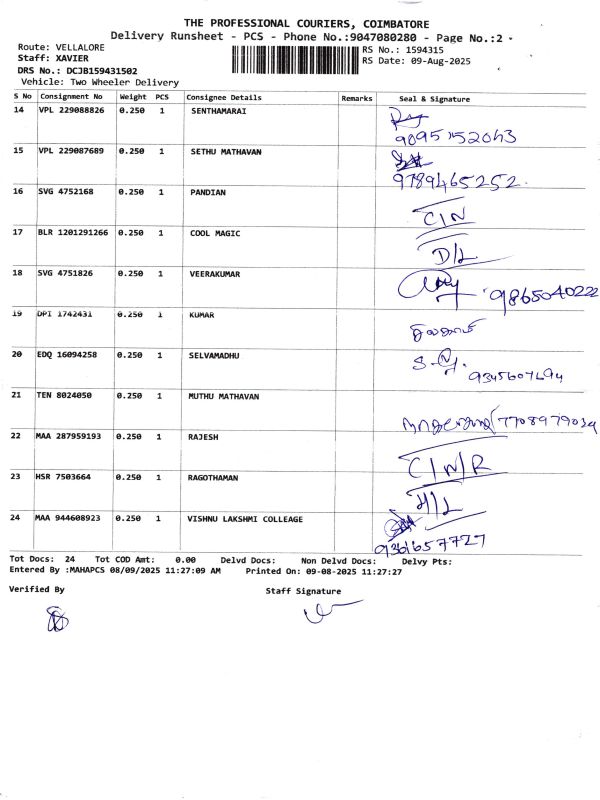 THE PROFESSIONAL COURIERS, COIMBATORE
Delivery Runsheet - PCS - Phone No.:9047080280 - Page No.:2
Route: VELLALORE
RS No.: 1594315
Staff: XAVIER
RS Date: 09-Aug-2025
DRS No.: DCJB159431502
Vehicle: Two Wheeler Delivery
S No Consignment No Weight PCS Consignee Details Remarks Seal & Signature
14 VPL 229088826 0.250 1 SENTHAMARAI
9095152043
15 VPL 229087689 0.250 1 SETHU MATHAVAN
9789465252
16 SVG 4752168 0.250 1 PANDIAN
C/N
17 BLR 1201291266 0.250 1 COOL MAGIC
D/L
18 SVG 4751826 0.250 1 VEERAKUMAR
9865040222
19 DPI 1742431 0.250 1 KUMAR
20 EDQ 16094258 0.250 1 SELVAMADHU
21 TEN 8024050 0.250 1 MUTHU MATHAVAN
22 MAA 287959193 0.250 1 RAJESH
C/N/R
23 HSR 7503664 0.250 1 RAGOTHAMAN
24 MAA 944608923 0.250 1 VISHNU LAKSHMI COLLEAGE
9361657727
Tot Docs: 24 Tot COD Amt: 0.00 Delvd Docs: Non Delvd Docs: Delvy Pts:
Entered By :MAHAPCS 08/09/2025 11:27:09 AM Printed On: 09-08-2025 11:27:27
Verified By
Staff Signature